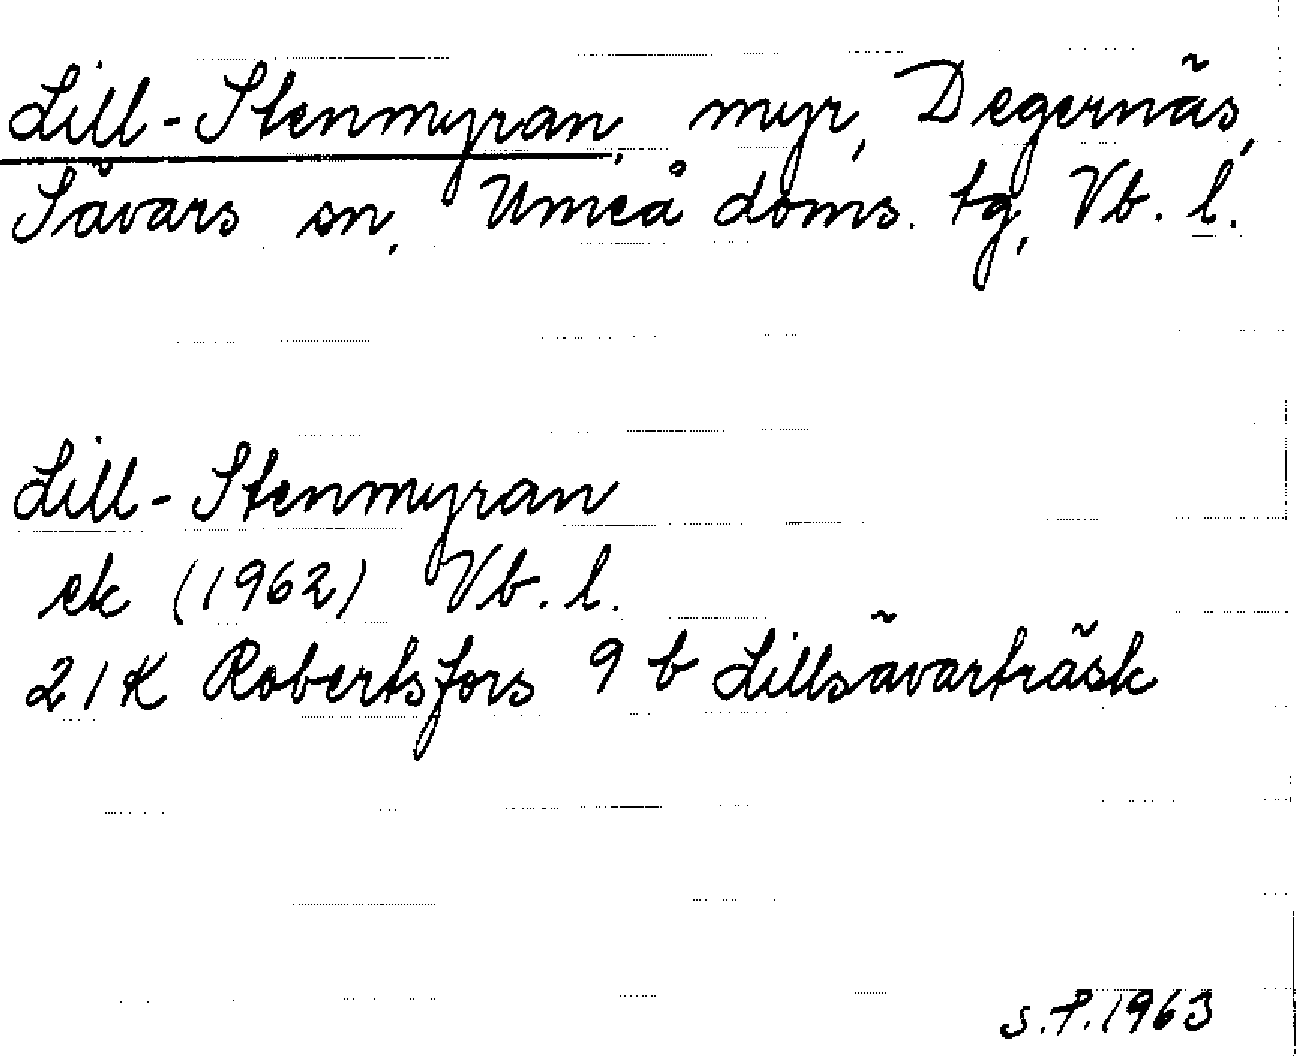 Lill-Stenmyran, myr, Degernäs,
Sävars sn, Umeå doms. tg, Vb. l.
Lill-Stenmyran
ek (1962) Vb. l.
21K Robertsfors 9 b Lillsävarträsk
S.P. 1963